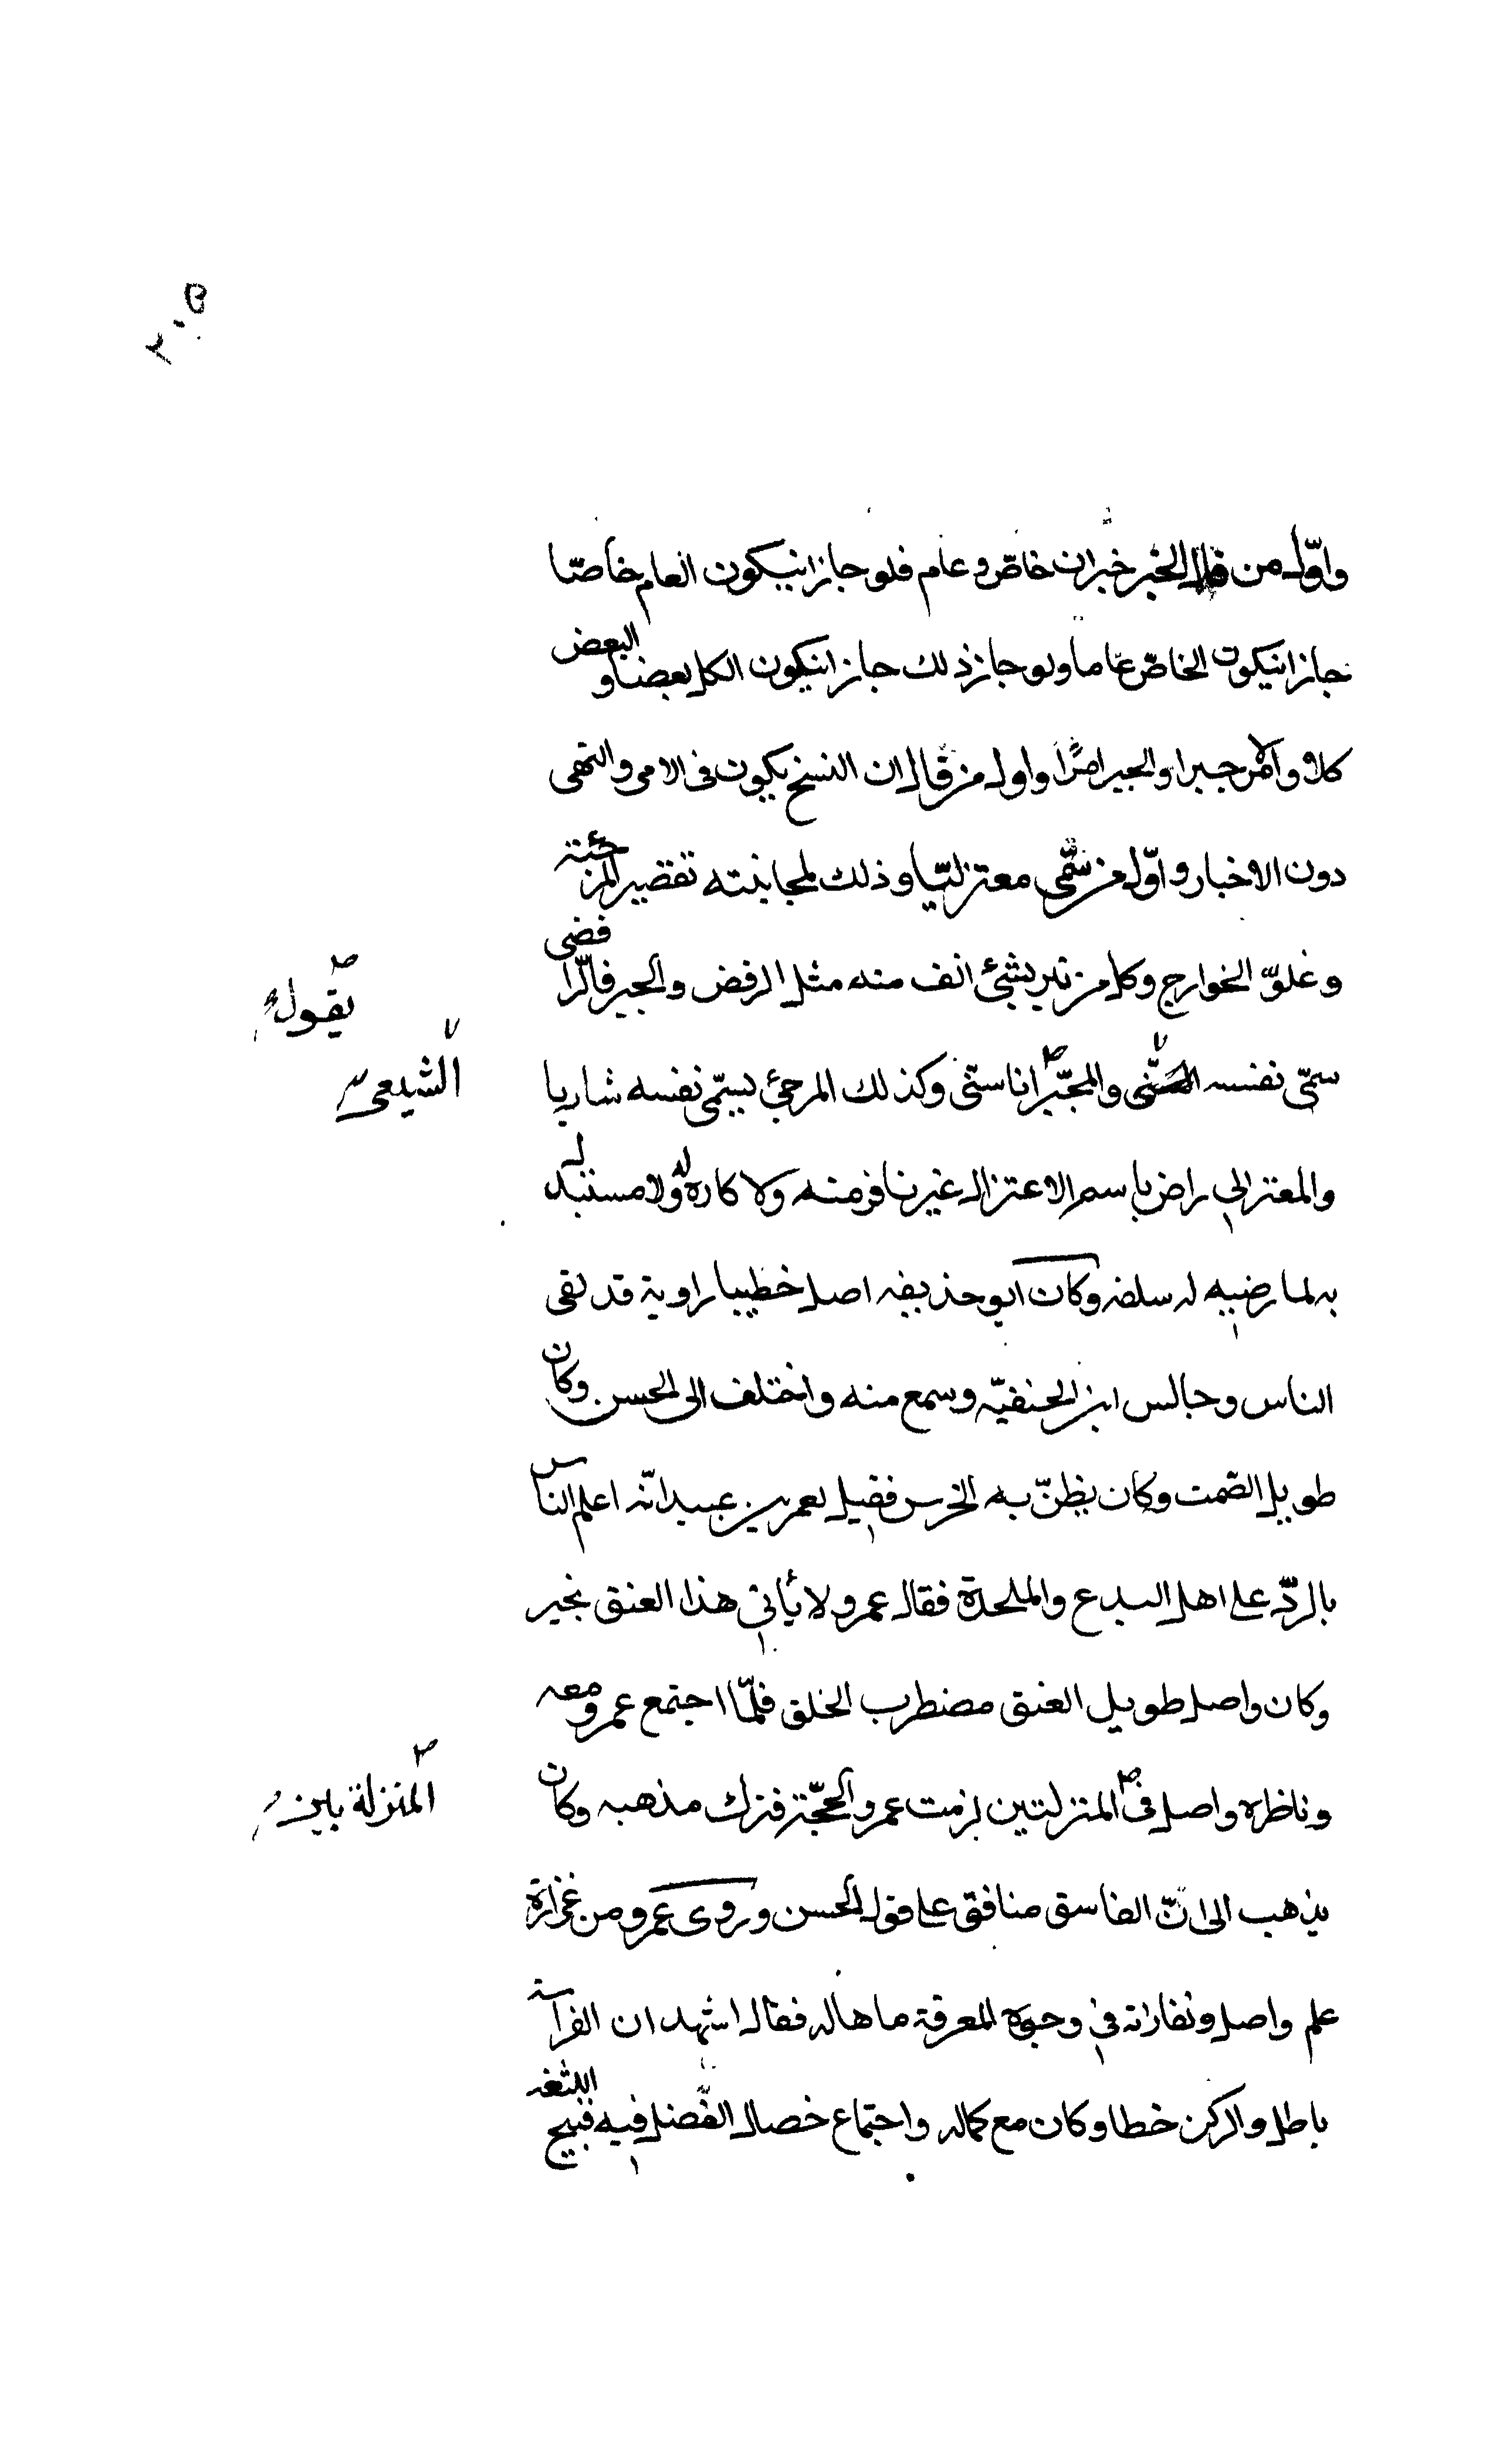 ٢٠٥
واوّل من قال الخبر خبران خاصّ وعام فلو جاز ان يكون العام خاصّا
جاز ان يكون الخاصّ عاما ولو جاز ذلك جاز ان يكون الكل بعضا والبعض
كلا والامر خبرا والخبر امرًا واول من قال ان النسخ يكون فى الامر والنهى
دون الاخبار واوّل من سُمّى معتزليّا وذلك لمجانبته تقصير المرجئة
وغلوّ الخوارج وكل من نبز بشئ انف منه مثل الرفض والجبر فالرافضى
سمّى نفسه الشيعى والمجبّر يقول انا سنّى وكذلك المرجئ يسمّى نفسه شاريا
والمعتزلى راض باسم الاعتزال غير نافر منه ولا كاره له ولا مستبدل
به لما رضيه له سلفه وكان ابو حذيفه اصل خطيبا راوية قد لقى
الناس وجالس ابن الحنفيّه وسمع منه واختلف الى الحسن وكان
طويل الصّمت وكان يظنّ به الخرس فقيل لعمرو بن عبيد انّه اعلم الناس
بالردّ على اهل البدع والملحدة فقال عمرو لا يأتى هذا العنق بخير
وكان واصل طويل العنق مضطرب الخلق فلمّا اجتمع عمرو معه
وناظره واصل فى المنزلة بين المنزلتين لزمت عمرو الحجّة فترك مذهبه وكان
يذهب الى انّ الفاسق منافق على قول الحسن وروى عمرو من غزارة
علم واصل ونفاراته فى وجوه المعرفة ما هاله فقال اشهد ان الفراسة
باطل والركن خطا وكان مع كماله واجتماع خصال الفضل فيه قبيح اللثغه